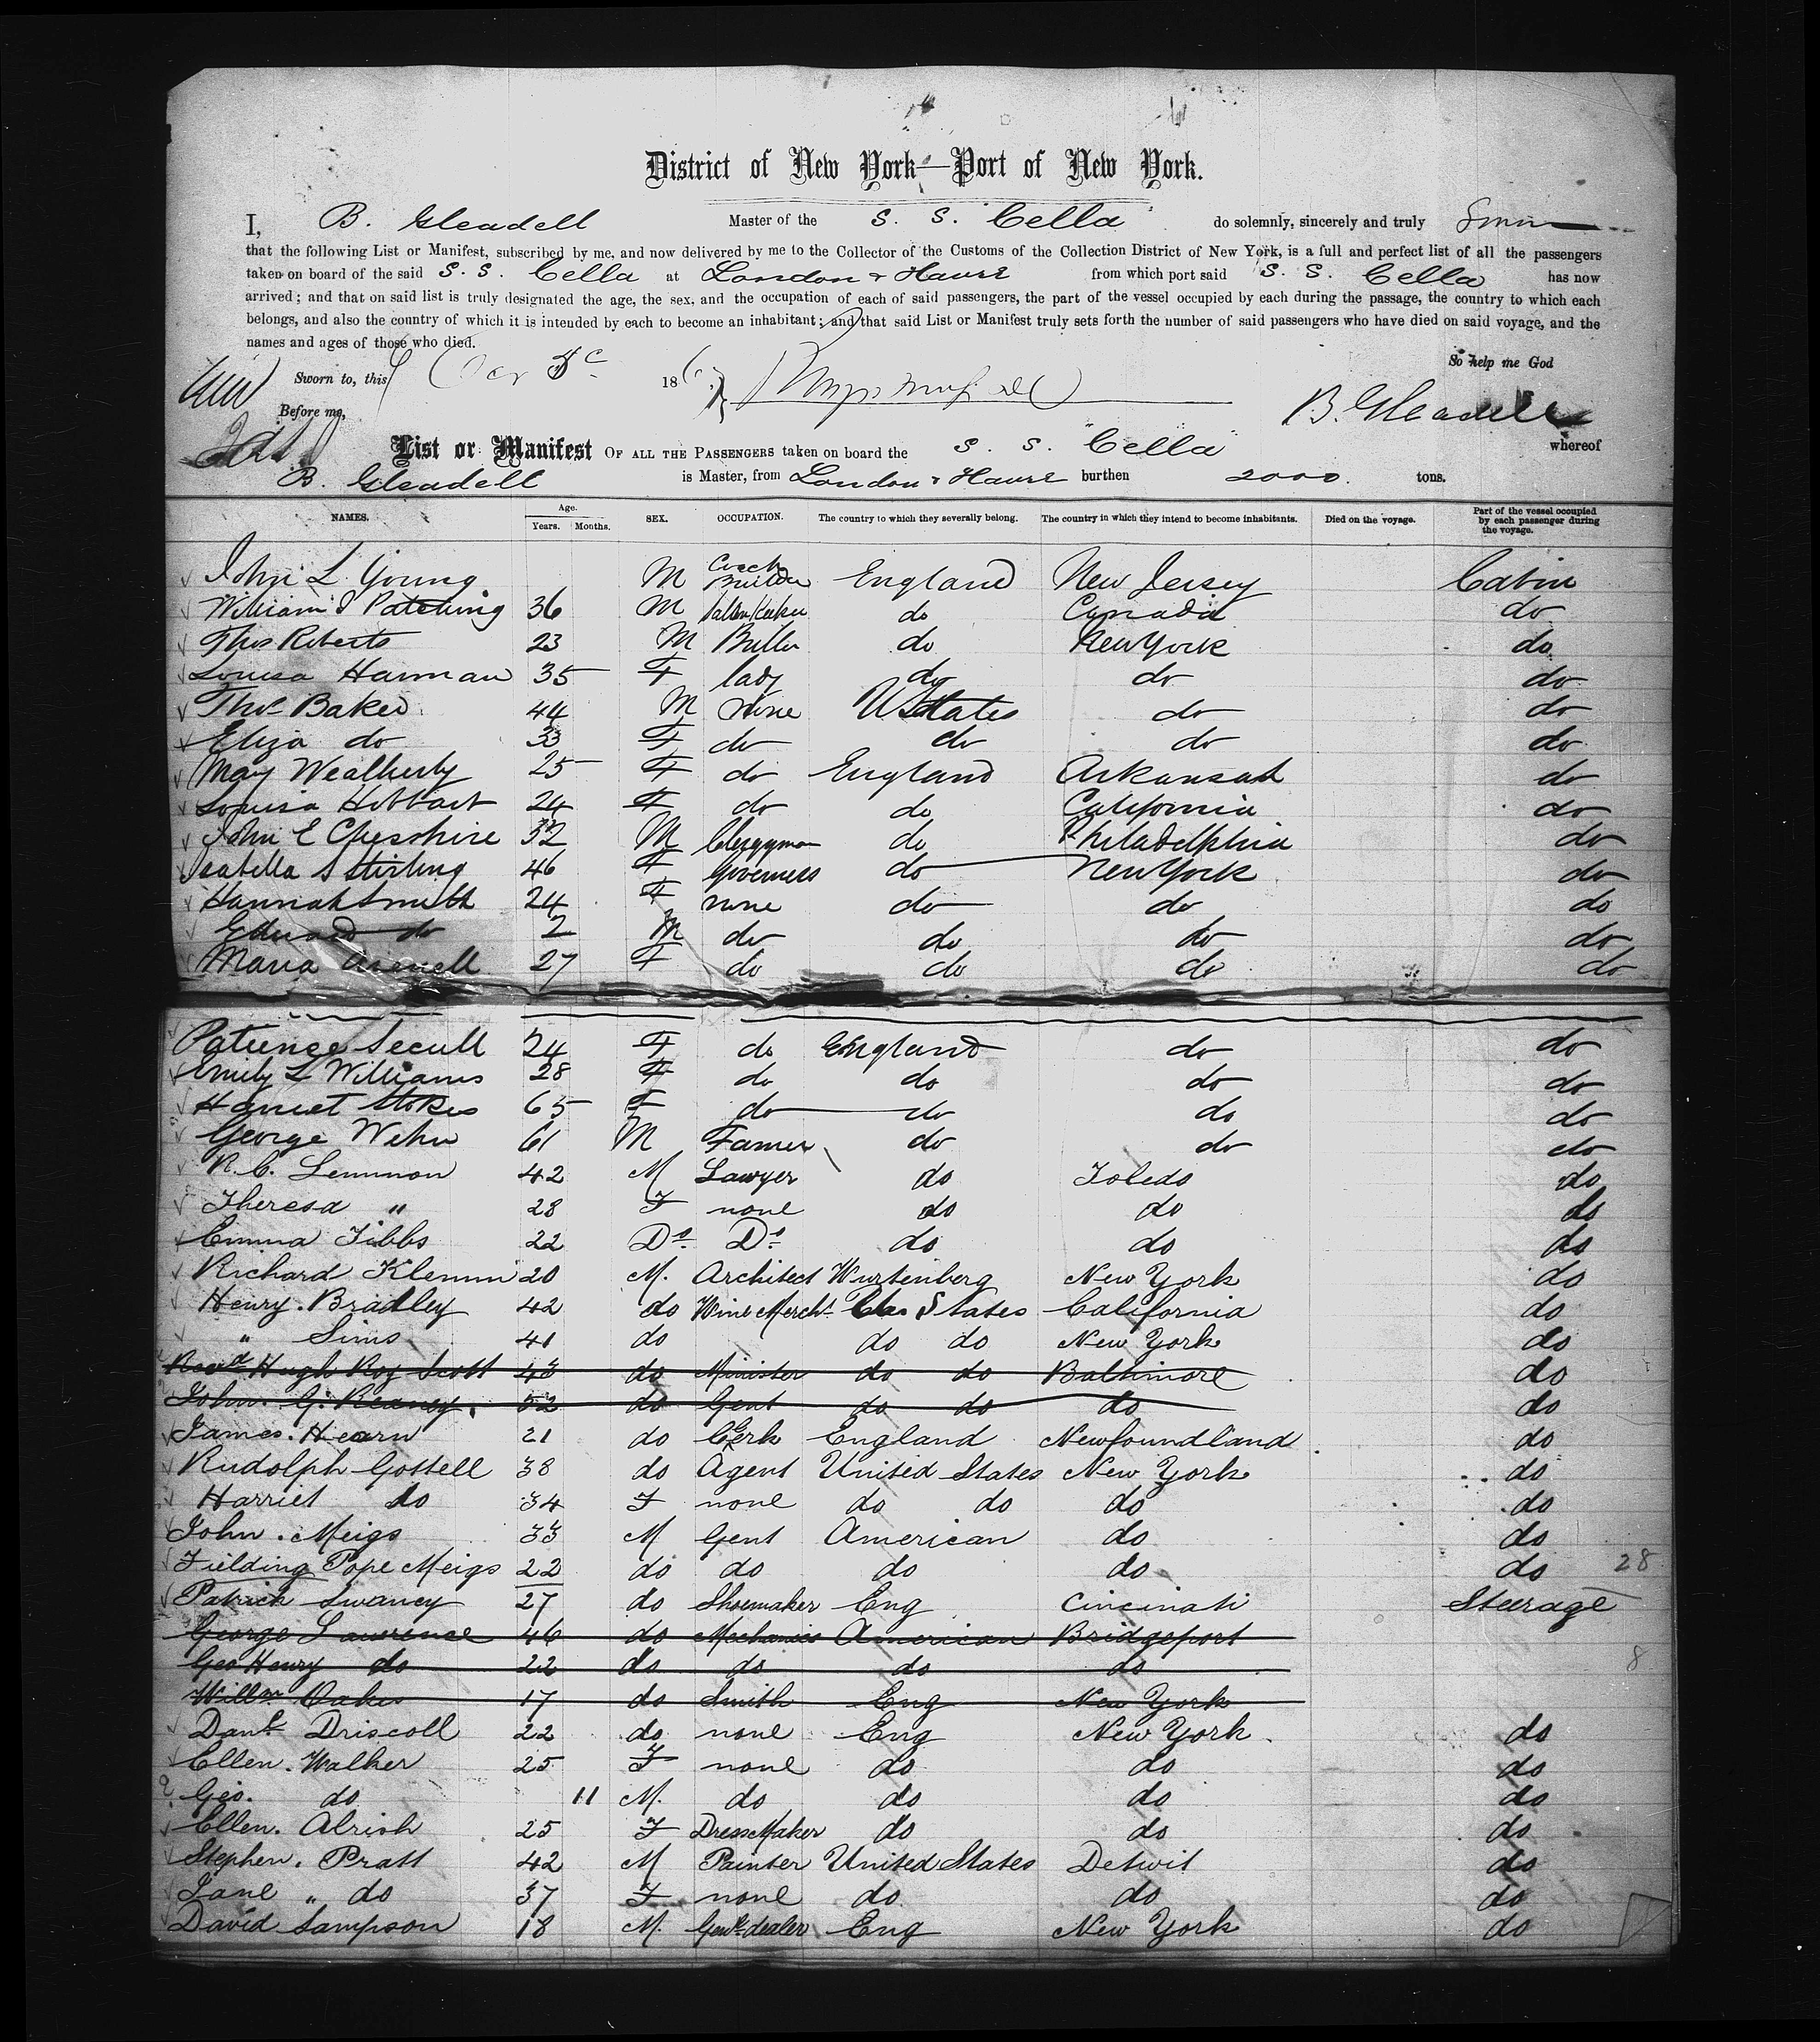 District of New York—Port of New York.
I, B. Gleadell Master of the S. S. "Cella" do solemnly, sincerely and truly
that the following List or Manifest, subscribed by me, and now delivered by me to the Collector of the Customs of the Collection District of New York, is a full and perfect list of all the passengers
taken on board of the said S. S. Cella at London & Havre from which port said S. S. Cella has now
arrived; and that on said list is truly designated the age, the sex, and the occupation of each of said passengers, the part of the vessel occupied by each during the passage, the country to which each
belongs, and also the country of which it is intended by each to become an inhabitant; and that said List or Manifest truly sets forth the number of said passengers who have died on said voyage, and the
names and ages of those who died.
So help me God
Sworn to, this 186
B. Gleadell
Before me,
List or Manifest OF ALL THE PASSENGERS taken on board the S. S. "Cella" whereof
B. Gleadell is Master, from London & Havre burthen 2000 tons.
NAMES. Age. Years. Months. SEX. OCCUPATION. The country to which they severally belong. The country in which they intend to become inhabitants. Died on the voyage. Part of the vessel occupied by each passenger during the voyage.
John L Young M Coach Builder England New Jersey Cabin
William I Patching 36 M do Canada do
Thos Roberts 23 M Butler do New York do
Louisa Harman 35 F lady do do do
Thos Baker 44 M None U States do do
Eliza do 33 F do do do do
Mary Weatherly 25 F do England Arkansas do
Louisa Hibbart 24 F do do California do
John E Cheshire 32 M Clergyman do Philadelphia do
Isabella S Stirling 46 F Governess do New York do
Hannah Smith 24 F none do do do
Edward do 2 M do do do do
Maria 27 F do do do do
Patience Secull 24 F do England do do
Emily L Williams 28 F do do do do
Harriet Stokes 65 F do do do do
George Wehn 61 M Famer do do do
R. C. Lemmon 42 M Lawyer do Toledo do
Theresa " 28 F none do do do
Emma Tibbs 22 Do Do do do do
Richard Klemm 20 M. Architect Wurtenberg New York do
Henry. Bradley 42 do Wine Mercht States California do
" Sims 41 do do do New York do
Revd Hugh Roy Scott 43 do Minister do do Baltimore do
John. G. Reaney. 52 do Gent do do do do
James. Hearn 21 do Clerk England Newfoundland do
Rudolph Gossell 38 do Agent United States New York do
Harriet do 34 F none do do do do
John. Meigs 33 M Gent American do do
Fielding Pope Meigs 22 do do do do do 28
Patrick Swaney 27 do Shoemaker Eng Cincinati Steerage
George Lawrence 46 do Mechanics American Bridgeport
Geo Henry do 22 do do do do 8
Willm Oakes 17 do Smith Eng New York
Danl Driscoll 22 do none Eng New York. do
Ellen. Walker 25 F none do do do
Geo. do 11 M. do do do do
Ellen. Alrish 25 F DressMaker do do do
Stephen. Pratt 42 M Painter United States Detroit do
Jane " do 37 F none do do do
David Sampson 18 M. Genl dealer Eng New York do